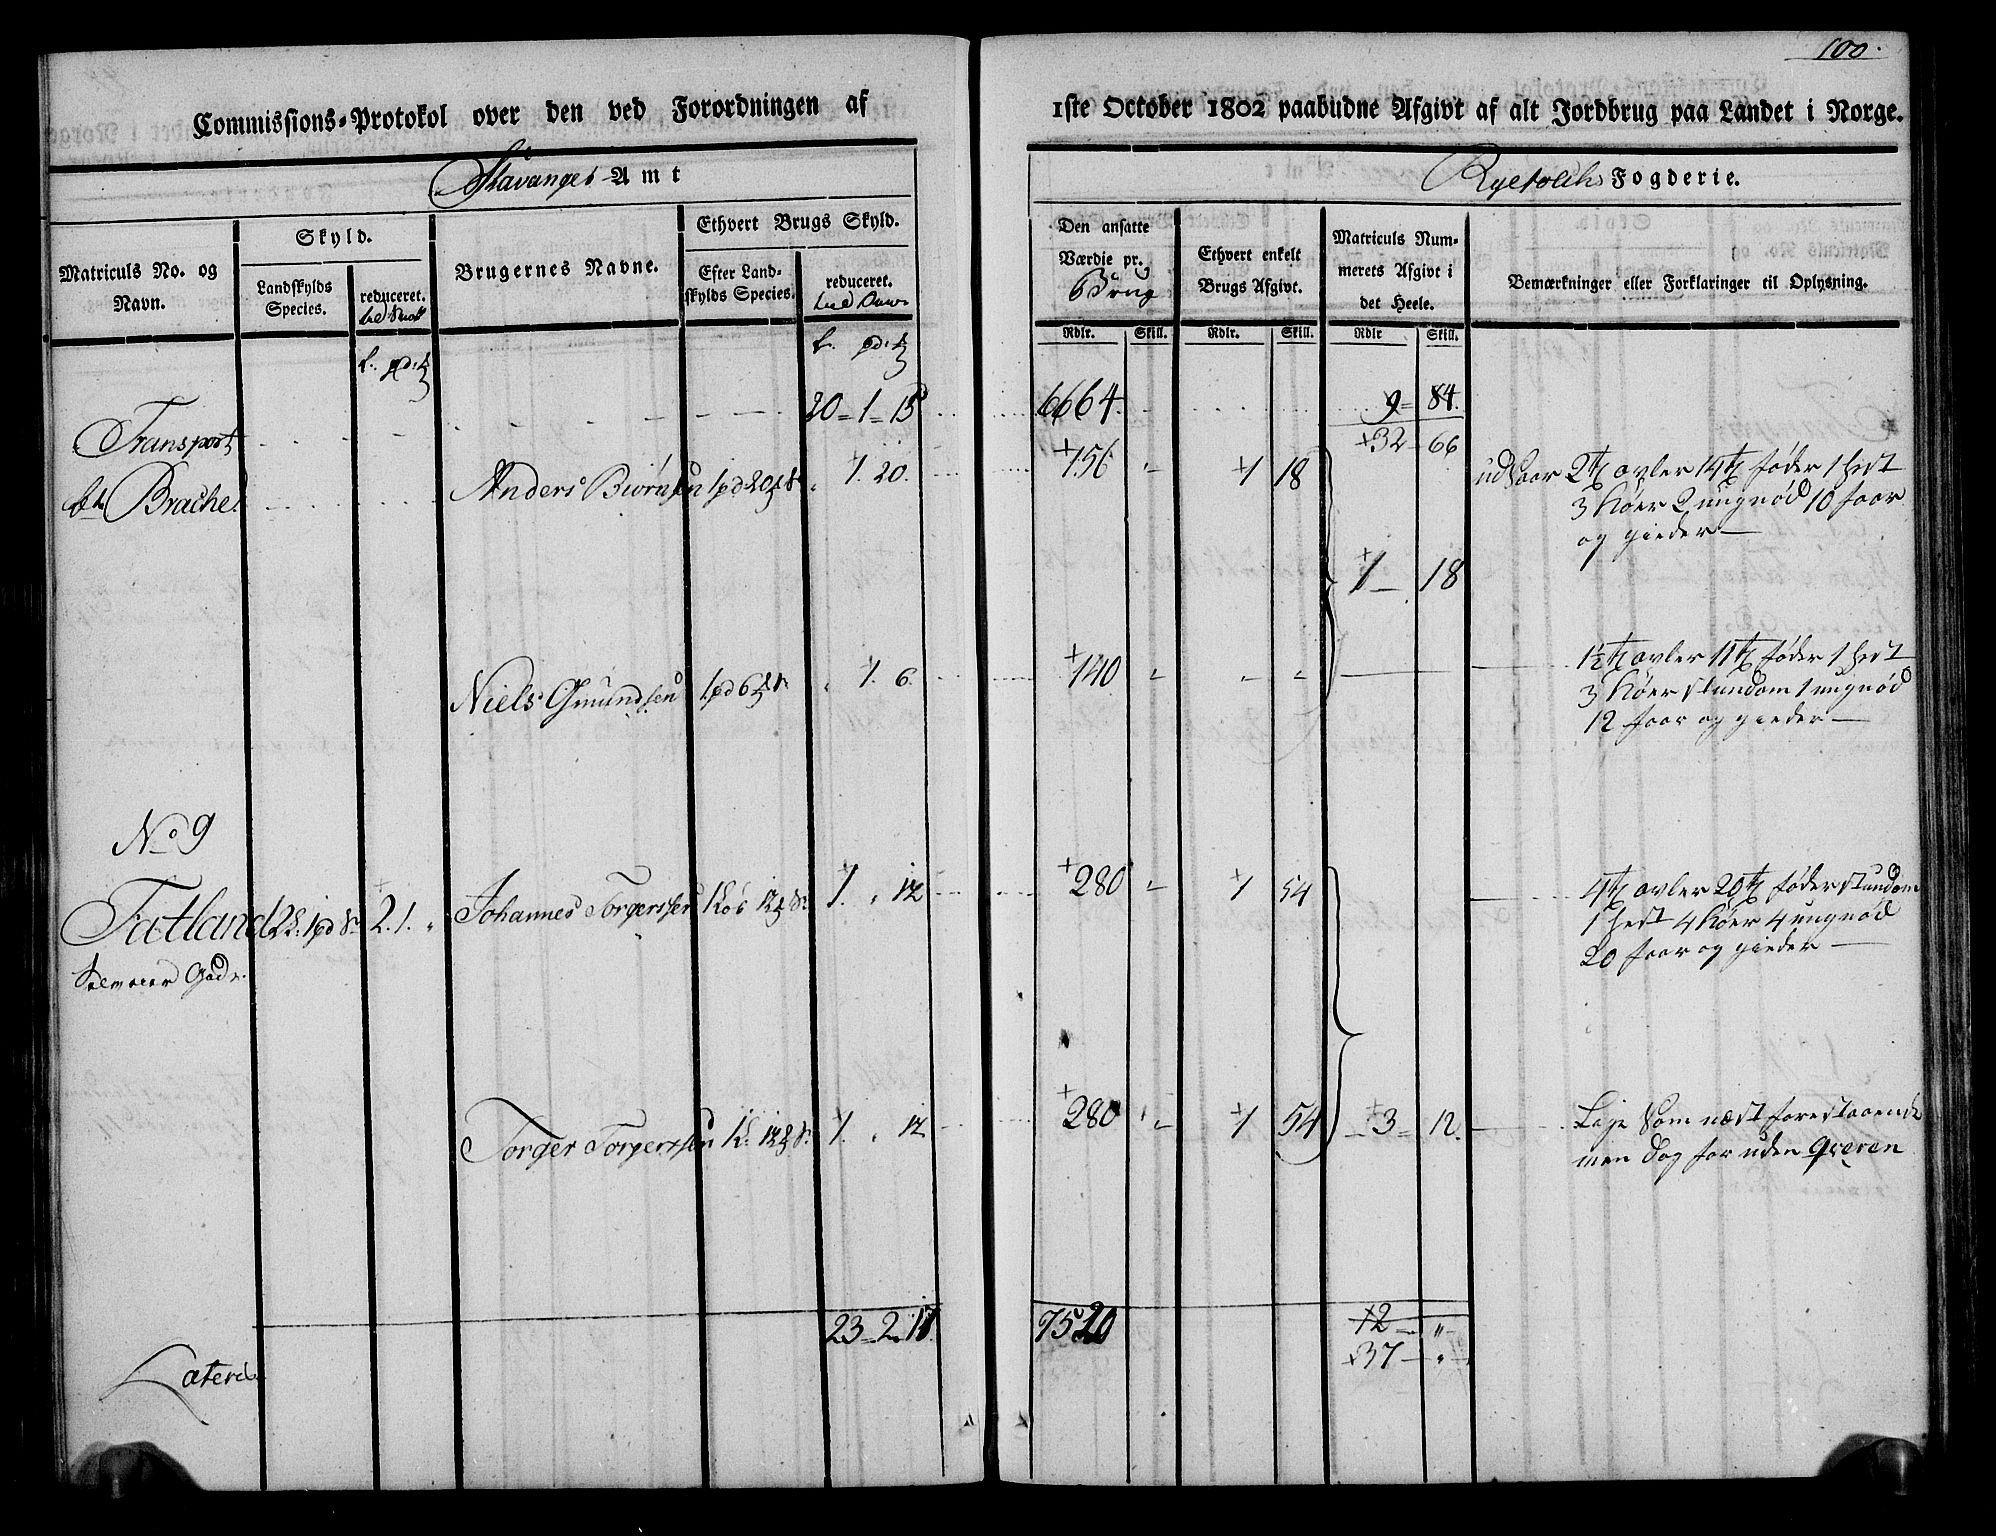 100.
Commissions-Protokol over den ved Forordningen af 1ste October 1802 paabudne Afgivt af alt Jordbrug paa Landet i Norge.
Stavanger Amt
Ryefolche Fogderie.
Matriculs No. og Navn.
Skyld.
Landskylds Species.
reduceret.
Brugernes Navne.
Ethvert Brugs Skyld.
Efter Landskylds Species.
reduceret.
Den ansatte Værdie pr. Brug
Ethvert enkelt Brugs Afgivt.
Matriculs Nummerets Afgivt i det Heele.
Bemærkninger eller Forklaringer til Oplysning.
Rdlr. Skill. Rdlr. Skill. Rdlr Skill.
Transport 20 = 1 = 15 6664. 9 = 84.
+32 - 66
Brache Anders Biørnsen 1pd 20 1. 20. +156 " +1 18
2 avler 14 føder 1 hest
3 Køer 2 ungnød 10 faar
og gieder —
+1 — 18
Niels Gmundsen 1pd 6 1. 6. +140 " " "
1½ avler 11 føder 1 hest
3 Køer stundom 1 ungnød
12 faar og gieder —
No 9
Fatland 2 1pd 2. 1. " Johannes Torgerssen 1 12 1. " 12 +280 " +1 54
4 avler 20 føder stundom
1 hest 4 Køer 4 ungnød
20 faar og gieder —
Torger Torgerssen 1 12 1. " 12 +280 " +1 54 +3 = 12.
Lige som næst forestaaende
men dog for uden Qveren
23 = 2 = 17. 7520 +2 — "
+37 — "
Laterer